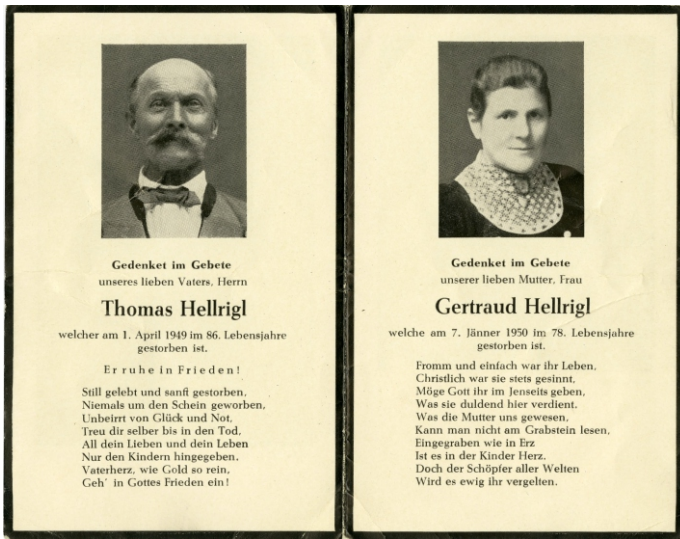 Gedenket im Gebete
unseres lieben Vaters, Herrn
Thomas Hellrigl
welcher am 1. April 1949 im 86. Lebensjahre
gestorben ist.
Er ruhe in Frieden!
Still gelebt und sanft gestorben,
Niemals um den Schein geworben,
Unbeirrt von Glück und Not,
Treu dir selber bis in den Tod,
All dein Lieben und dein Leben
Nur den Kindern hingegeben.
Vaterherz, wie Gold so rein,
Geh' in Gottes Frieden ein!
Gedenket im Gebete
unserer lieben Mutter, Frau
Gertraud Hellrigl
welche am 7. Jänner 1950 im 78. Lebensjahre
gestorben ist.
Fromm und einfach war ihr Leben,
Christlich war sie stets gesinnt,
Möge Gott ihr im Jenseits geben,
Was sie duldend hier verdient.
Was die Mutter uns gewesen,
Kann man nicht am Grabstein lesen,
Eingegraben wie in Erz
Ist es in der Kinder Herz.
Doch der Schöpfer aller Welten
Wird es ewig ihr vergelten.